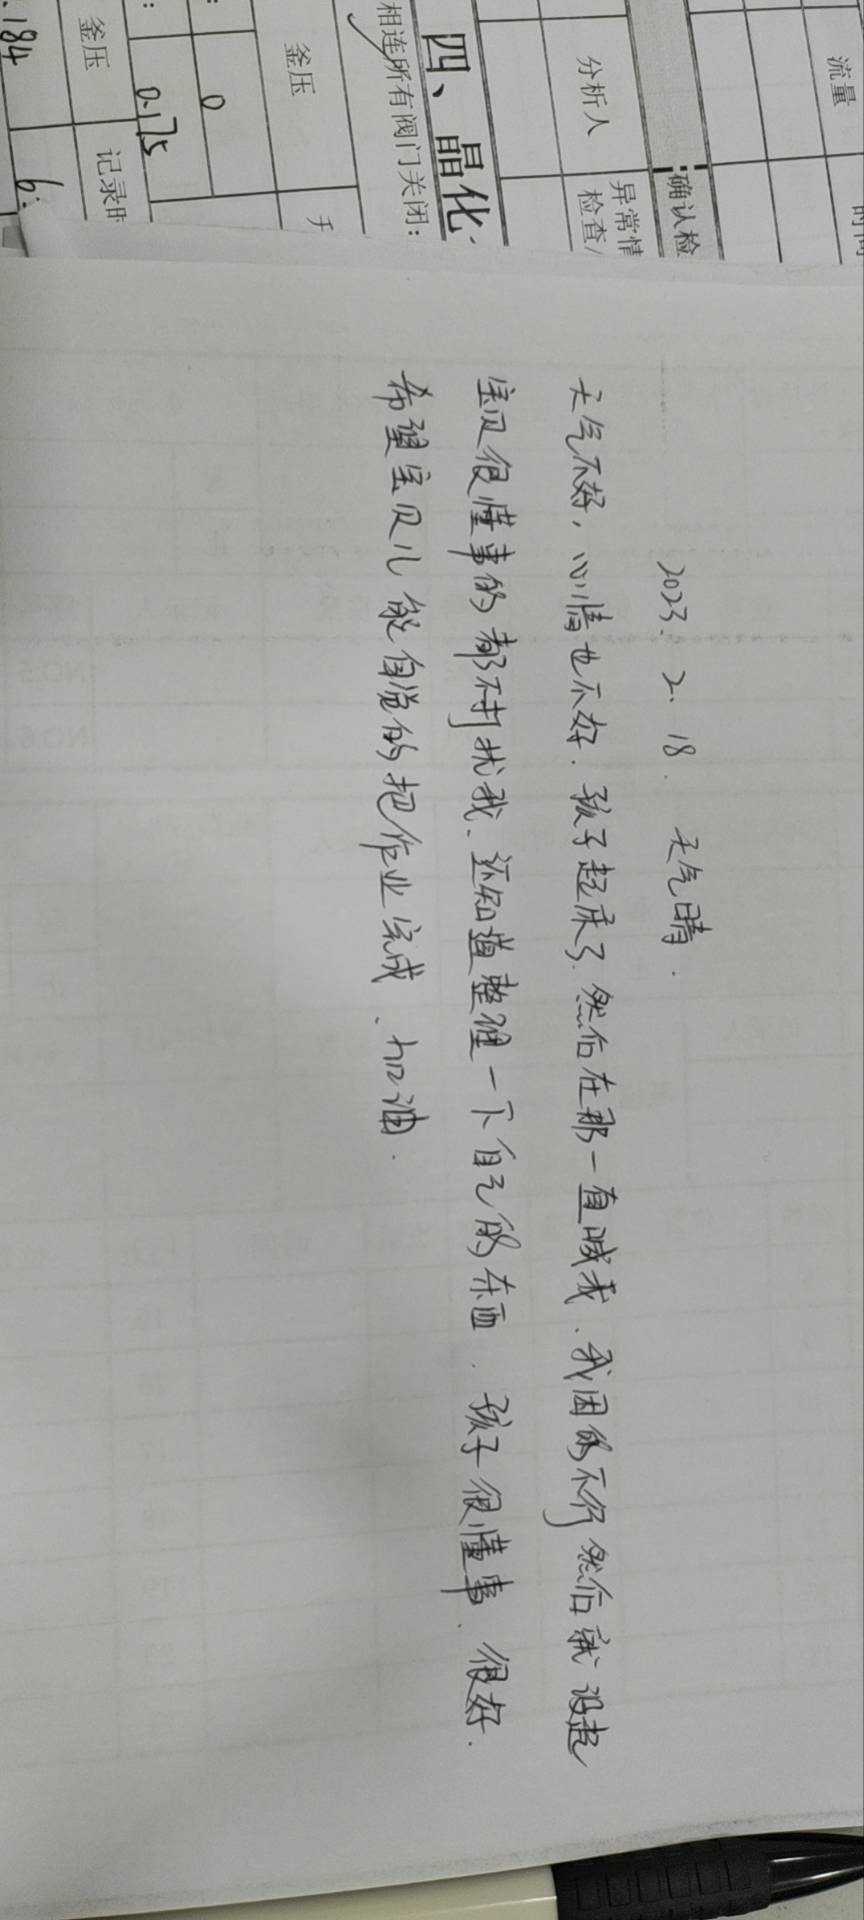 流量
时间
确认检
分析人
异常情
检查
四、晶化
相连所有阀门关闭:
釜压
0
0.175
釜压
记录时
.184
6:
2023. 2. 18. 天气晴.
天气不好, 心情也不好. 孩子起床了. 然后在那一直喊我、我困的不行然后就没起
宝贝很懂事的都不打扰我、还知道整理一下自己的东西. 孩子很懂事. 很好.
希望宝贝儿能自觉的把作业完成、加油.
NO.5
NO.6